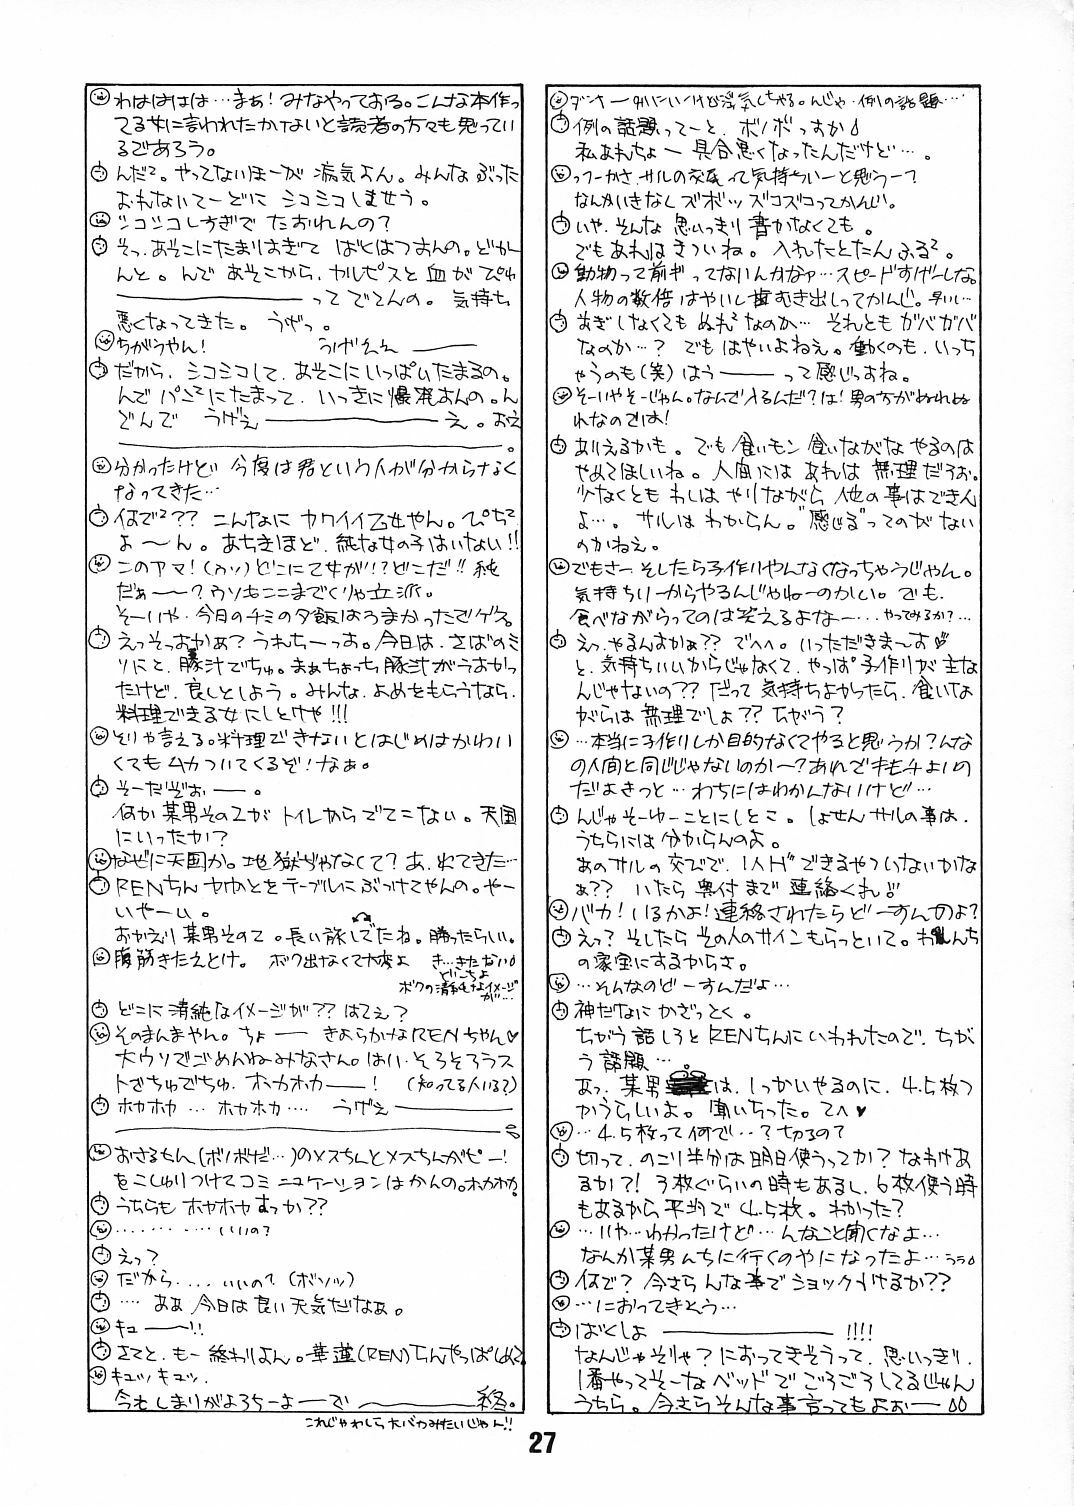 例の話題ってーと、ボノボっすか
私あれちょー具合悪くなったんだけど…。
っつーかさ、サルの交尾って気持ちいーと思うー?
なんかいきなしズボッズコズコってかんじ。
いや、そんな思いっきり書かなくても。
でもあれはきついね。入れたとたんふる²。
動物って前ギってないんかなァ…スピードすげーしな。
人物の数倍はやいし歯むき出しってかんじ。早いし…
あぎしなくてもぬれ²なのか… それともガバガバ
なのか…? でもはやいよねぇ。働くのも、いっち
ゃうのも(笑)はうーーって感じっすね。
そーいやそーじゃん。なんで入るんだ?は!男の方がぬれぬ
れなのでは!
ありえるかも。でも食いモン食いながなやるのは
やめてほしいね。人間にはあれは無理だろお。
少なくともわしはやりながら他の事はできん
よ…。サルはわからん。"感じる"ってのがない
のかねぇ。
でもさー、そしたら子作りやんなくなっちゃうじゃん。
気持ちいーからやるんじゃねーのかい。でも、
食べながらってのは笑えるよなー…やってみるか?…
えっ、やるんすかぁ?? でへへ。いっただきまーす♡
と、気持ちいいからじゃなくて、やっぱ子作りが主な
んじゃないの?? だって気持ちよかったら、食いな
がらは無理でしょ?? ちがう?
…本当に子作りしか目的なくてやると思うか?んな
の人間と同じじゃないのか〜?あれでキモチよいの
だよきっと…わちにはわかんないけど…
んじゃそーゆーことにしとこ。しょせんサルの事は、
うちらには分からんのよ。
あのサルの交ビで、1人Hできるやついないかな
ぁ?? いたら奥付まで連絡くれ!!
バカ!いるかよ!連絡されたらどーすんのよ?
えっ?そしたらその人のサインもらっといて。わしんち
の家宝にするからさ。
…そんなのどーすんだよ…
神だなにかざっとく。
ちがう話しろとRENちんにいわれたので、ちが
う話題…
あっ、某男は、1っかいやるのに、4.5枚つ
かうらしいよ。聞いちった。てへ♥
…4.5枚って何で…?切るの?
切って、のこり半分は明日使うってか?なわけあ
るか?!3枚ぐらいの時もあるし、6枚使う時
もあるから平均で4.5枚。わかった?
…いや…わかったけど…んなこと聞くなよ…
なんか某男んちに行くのやになったよ…うらら
何で?今さらんな事でショックうけるか??
…におってきとう…
ばくしょーーーー!!!!
なんじゃそりゃ?におってきそうって、思いっきり、
1番やってそーなベッドでごろごろしてるじゃん
うちら。今さらそんな事言ってもよぉー
わはははは…まぁ!みなやっておる。こんな本作っ
てる女に言われたかないと読者の方々も思ってい
るであろう。
んだ²。やってないほーが病気よん。みんなぶった
おれないてーどにシコミコしませう。
シコシコしすぎでたおれんの?
そっ、あそこにたまりすぎてばくはつすんの。どか
んと。んであそこから、カルピスと血がぴゅ
ーーーーってでてんの。気持ち
悪くなってきた。うげっ。
ちがうやん! うげええーー
だから、シコミコして、あそこにいっぱいたまるの。
んでパン²にたまって、いっきに爆発すんの。ん
どんで うげえーーーーえ。おえ
ーーーー。
分かったけど今度は君という人が分からなく
なってきた…
何で²?? こんなにカワイイ乙女やん。ぴち²
よ〜ん。あちきほど、純な女の子はいない!!
このアマ!(ウソ)どこに乙女が!?どこだ!!純
だぁ〜?ウソもここまでくりゃ立派。
そーいや、今日のチミの夕飯はうまかったでゲス。
えっそっすかぁ?うれちーっす。今日は、さばのミ
ソにと、豚汁でちゅ。まぁちょっち豚汁がうすかっ
たけど、良しとしよう。みんな、よめをもらうなら、
料理できる女にしとけや!!!
そりゃ言える。料理できないとはじめはかわい
くてもムカついてくるぞ!なぁ。
そーだぞぉー。
何か某男その2がトイレからでてこない。天国
にいったか?
なぜに天国か。地獄ぢゃなくて?あ、でてきた…
RENちんヤカンとをテーブルにぶつけてやんの。やー
いやーい。
おかえり某男その2。長い旅してたね。勝ったらしい。
腹筋きたえとけ。 ボク出なくて大変よ き…きたない
どこちよ
ボクの清純なイメージが…
どこに清純なイメージが?? はてぇ?
そのまんまやん。ちょーー きよらかなRENちゃん♥
大ウソでごめんねみなさん。はい、そろそろラス
トでちゅでちゅ、ホカホカーー! (知ってる人いる?)
ホカホカ…ホカホカ… うげえーーーー
おさるちん(ボノボだ…)のメスちんとメスちんがピー!
をこしゅりつけてコミュニケーションはかんの。ホカホカ。
うちらもホカホカすっか??
………… いいの?
えっ?
だから…… いいの?(ボソッ)
…ああ今日は良い天気だなぁ。
キューー!!
さてと、もー終わりよん。華蓮(REN)ちんやっぱしめて
キュッキュッ、
今もしまりがよろちーよーーでーーーー終。
これじゃわしら大バカみたいじゃん!!
27